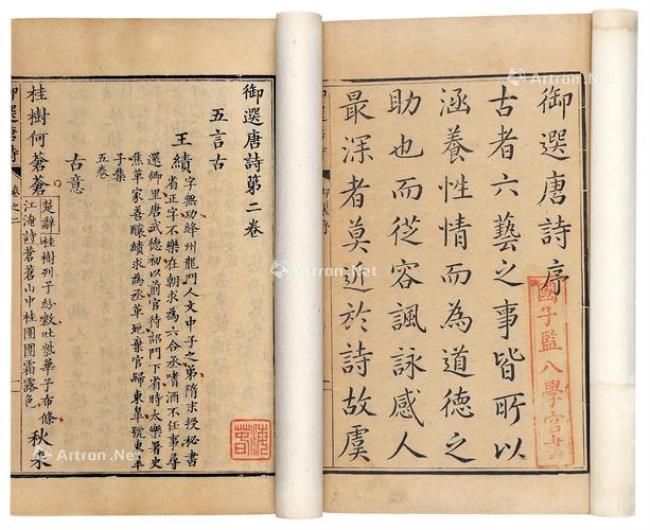 御選唐詩序
古者六藝之事皆所以
涵養性情而為道德之
助也而從容諷詠感人
最深者莫近於詩故虞
國子監八學官書
御選唐詩第二卷
五言古
王績
字無功絳州龍門人文中子之弟隋末授秘書
省正字不樂在朝求為六合丞嗜酒不任事尋
還鄉里唐武德初以前官待詔門下省時太樂署史
焦革家善釀績求為丞革死棄官歸東皋號東皋
子集
五卷
古意
桂樹何蒼蒼
楚辭桂樹列兮紛敷吐紫華兮布條
江淹詩蒼蒼山中桂團團霜露色
秋來
御選唐詩
卷之二
Artron.Net
Artron.Net
Artron.Net
Artron.Net